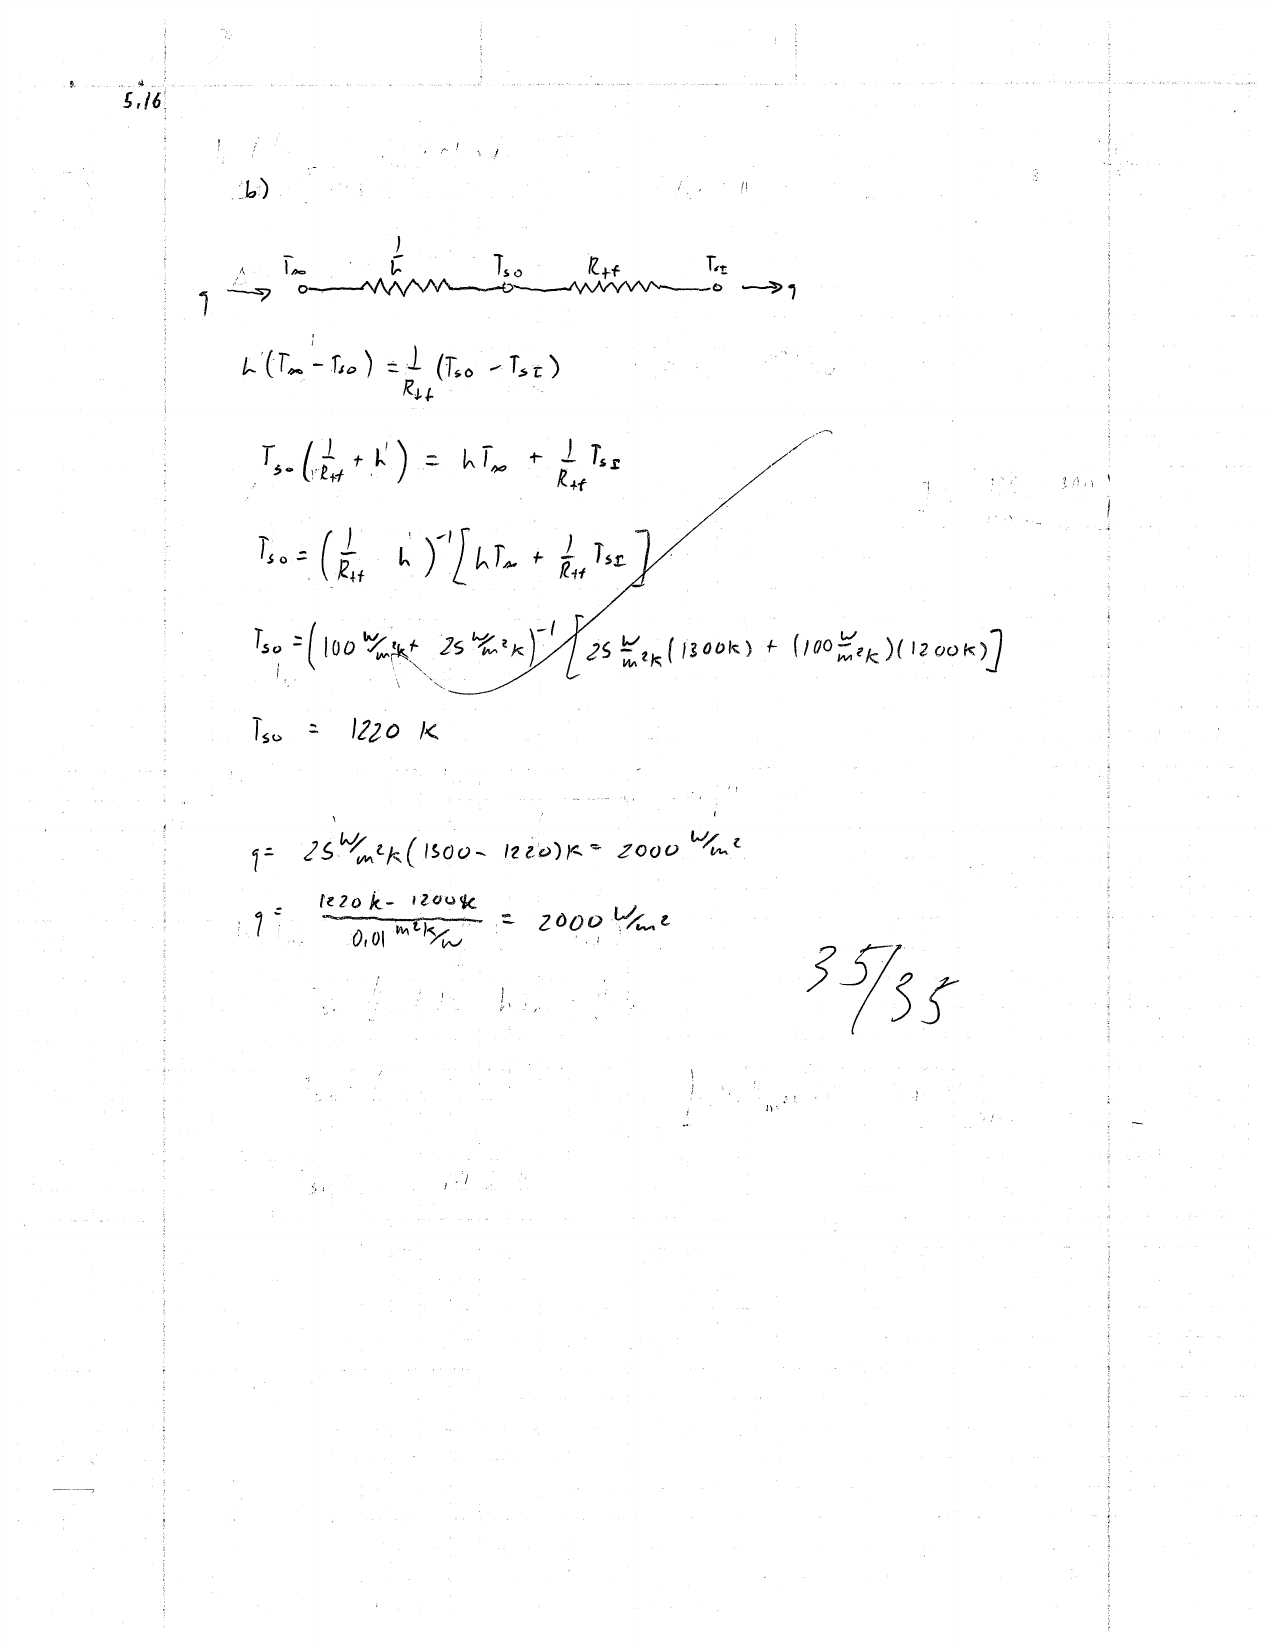 5.16
b)
T∞ 1/h Tso Rtf TsI
q → → q
h(T∞ - Tso) = 1/Rtf (Tso - TsI)
Tso(1/Rtf + h) = hT∞ + 1/Rtf TsI
Tso = (1/Rtf h)^-1 [hT∞ + 1/Rtf TsI]
Tso = (100 W/m²K + 25 W/m²K)^-1 [25 W/m²K (1300K) + (100 W/m²K)(1200K)]
Tso = 1220 K
q = 25 W/m²K (1300 - 1220)K = 2000 W/m²
q = (1220K - 1200K)/(0.01 m²K/W) = 2000 W/m²
35/35